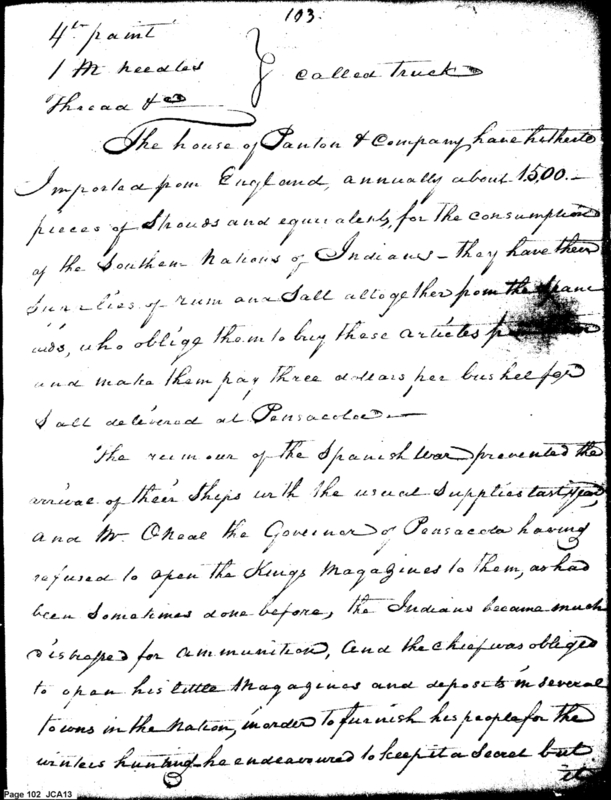 103.
4lb paint
1 M needles } called truck
Thread &ca
The house of Panton & Company have hitherto
Imported from England, annually about 1500.—
pieces of Strouds and equivalents, for the consumption
of the Southern Nations of Indians — they have their
supplies of rum and Salt altogether from the Spani
ards, who oblige them to buy these articles from them
and make them pay three dollars per bushel for
Salt delivered at Pensacola.—
The rumour of the Spanish War prevented the
arrival of their Ships with the usual Supplies last Year,
and Mr. Oneal the Governor of Pensacola having
refused to open the Kings Magazines to them, as had
been sometimes done before, the Indians became much
distressed for ammunition, and the chief was obliged
to open his little Magazines and deposits in several
towns in the Nation, in order to furnish his people for the
winters hunting — he endeavoured to keep it a Secret but
it
Page 102 JCA13